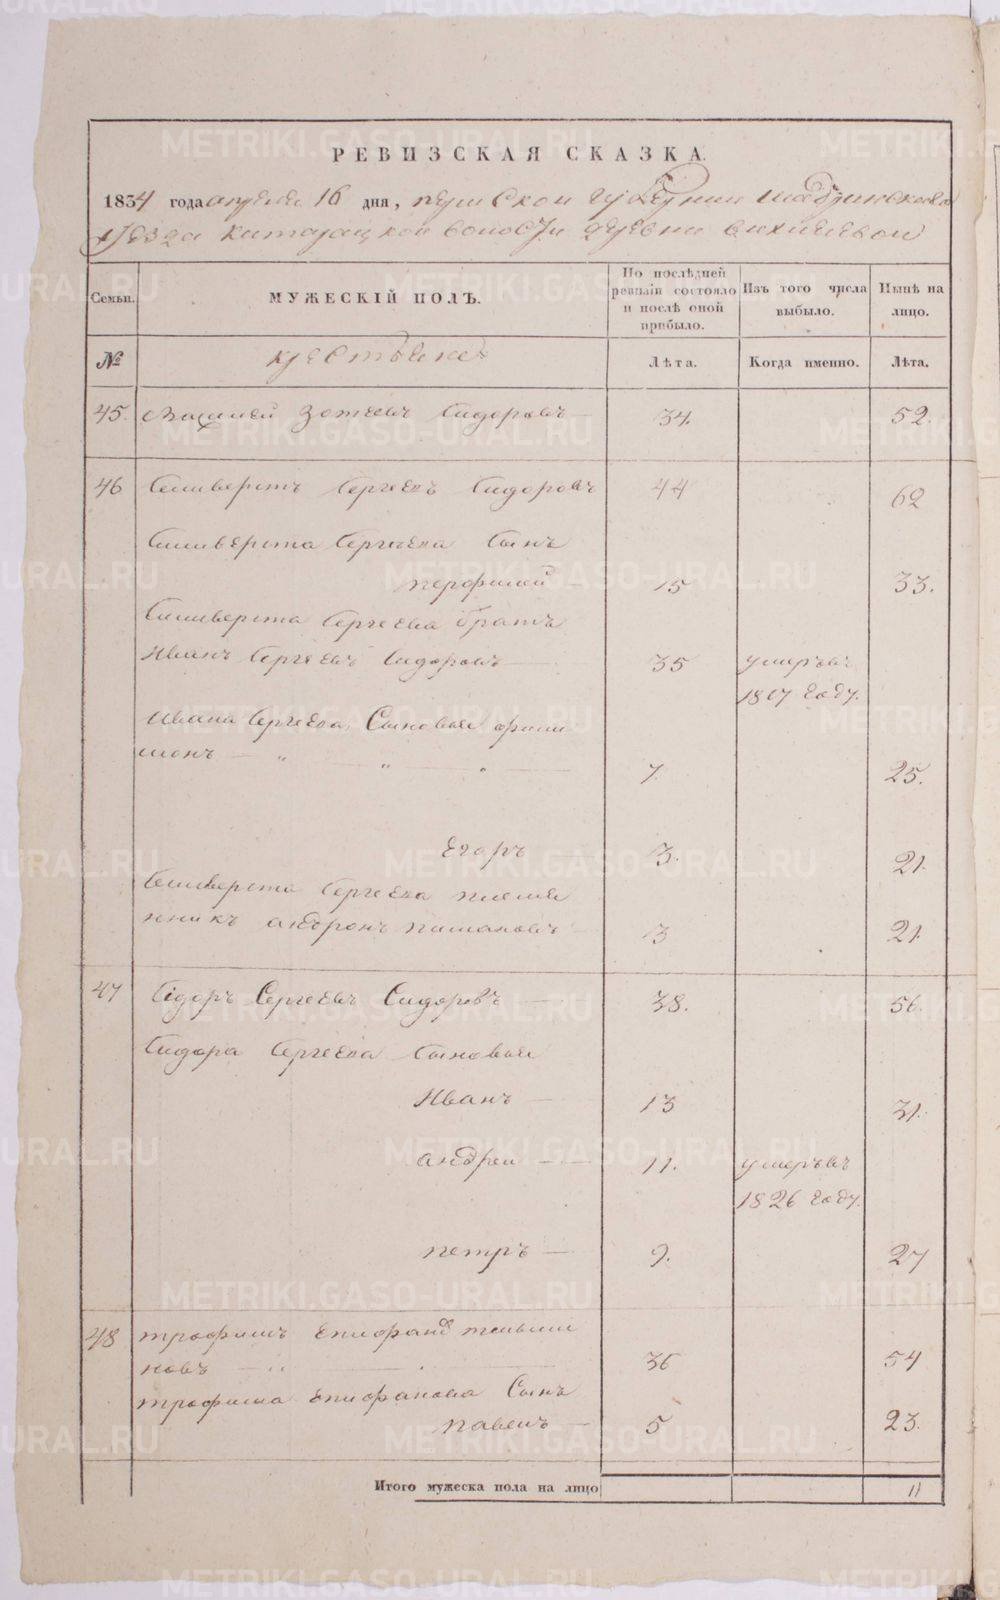 РЕВИЗСКАЯ СКАЗКА.
1834 года апреля 16 дня, пермской губернии шадринскаго
уезда катайской волости деревни
Семьи. МУЖЕСКІЙ ПОЛЪ. По послѣдней ревизіи состояло и послѣ оной прибыло. Изъ того числа выбыло. Нынѣ на лицо.
№ крестьяне Лѣта. Когда именно. Лѣта.
45. Зотеевъ Сидоровъ 34. 52.
46 Селиверстъ Сергеевъ Сидоровъ 44 62
Силиверста Сергеева Сынъ
перфилей 15 33.
Силиверста Сергеева братъ
Иванъ Сергеевъ Сидоровъ 35 умеръвъ
1817 году.
Ивана Сергеева Сыновья фили
монъ " " " 7. 25.
Егоръ 3. 21.
Селиверста Сергеева племя
нникъ андронъ 3 21.
47 Сідоръ Сергеевъ Сидоровъ 38. 56.
Сидора Сергеева Сыновья
Иванъ 13 31.
андреи 11. умеръвъ
1826 году.
петръ 9. 27
48 трофимъ
новъ " " 36 54
трофима Епифанова Сынъ
павелъ 5 23.
Итого мужеска пола на лицо 11
METRIKI.GASO-URAL.RU